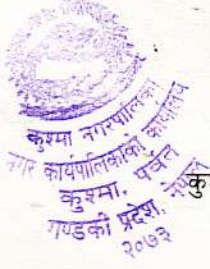 कुश्मा नगरपालिका
नगर कार्यपालिकाको कार्यालय
कुश्मा, पर्वत
गण्डकी प्रदेश, नेपाल
२०७३
कु